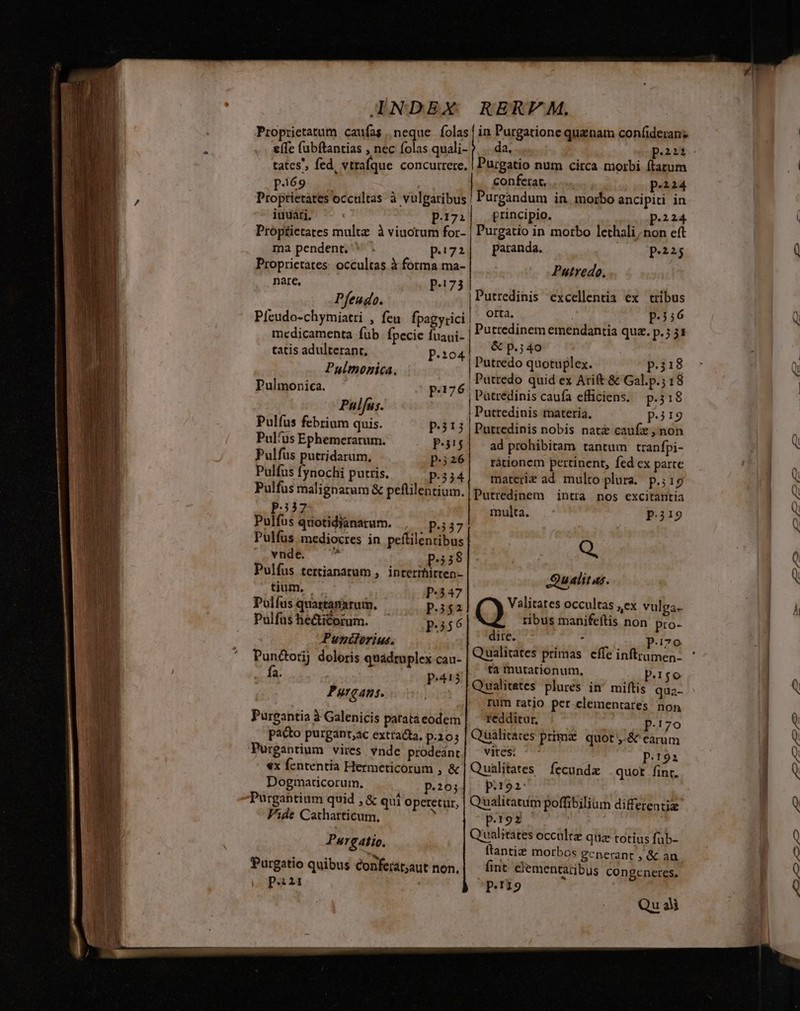 INDEX RERVM.
Proprietatum cauſas neque ſolas
eſſe ſubſtantias , nec ſolas quali-
tates, ſed vtraſque concurrere.
p.169
Proprietates occultas à vulgaribus
iuuari, p.171
Proprietates multæ à viuorum for-
ma pendent. p.172
Proprietates occultas à forma ma-
nare, p.173
Pſeudo.
Pſeudo-chymiatri , ſeu ſpagyrici
medicamenta ſub ſpecie ſuaui-
tatis adulterant, p.204
Pulmonica.
Pulmonica. p.176
Pulſus.
Pulſus febrium quis. p.313
Pulſus Ephemerarum. p.315
Pulſus putridarum, p.326
Pulſus ſynochi putris, p.334
Pulſus malignarum & peſtilentium.
p.337
Pulſus quotidianarum. p.337
Pulſus mediocres in peſtilentibus
vnde. p.338
Pulſus tertianarum , intermitten-
tium, p.347
Pulſus quartanarum. p.352
Pulſus hecticorum. p.356
Punctorius.
Punctorij doloris quadruplex cau-
ſa. p.413
Purgans.
Purgantia à Galenicis parata eodem
pacto purgant,ac extracta. p.203
Purgantium vires vnde prodeant
ex ſententia Hermeticorum , &
Dogmaticorum. p.203
Purgantium quid , & qui operetur,
Vide Catharticum.
Purgatio.
Purgatio quibus conferat,aut non.
p.221
in Purgatione quænam conſideran-
da. p.221
Purgatio num circa morbi ſtatum
conferat. p.224
Purgandum in morbo ancipiti in
principio. p.224
Purgatio in morbo lethali, non eſt
paranda. p.225
Putredo.
Putredinis excellentia ex tribus
orta. p.336
Putredinem emendantia quæ. p.331
& p.340
Putredo quotuplex. p.318
Putredo quid ex Ariſt & Gal.p.318
Putredinis cauſa efficiens. p.318
Putredinis materia, p.319
Putredinis nobis natæ cauſæ, non
ad prohibitam tantum tranſpi-
rationem pertinent, ſed ex parte
materiæ ad multo plura. p.319
Putredinem intra nos excitantia
multa. p.319
Q
Qualitas.
QValitates occultas ,ex vulga-
ribus manifeſtis non pro-
dire. p.170
Qualitates primas eſſe inſtrumen-
ta mutationum, p.150
Qualitates plures in miſtis qua-
rum ratio per elementares non
redditur, p.170
Qualitates primæ quot, & earum
vires: p.192
Qualitates ſecundæ quot ſint.
p.192
Qualitatum poſſibilium differentiæ
p.192
Qualitates occultæ quæ totius ſub-
ſtantiæ morbos generant , & an
ſint elementaribus congeneres.
p.119
Qu ali